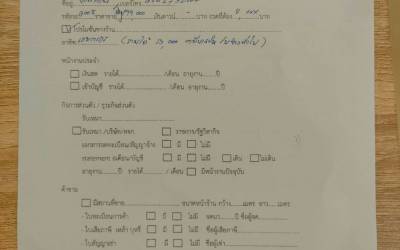 ชื่อผู้ เบอร์โทร
ราคาขาย 99,000 เงินดาวน์ บาท งวดที่ต้อง ปี บาท
☑ โปรโมชั่นทางร้าน
อาชีพ เกษตรกร (รายได้ 15,000
พนักงานประจำ
☐ เงินสด รายได้ /เดือน อายุงาน ปี
☐ เข้าบัญชี รายได้ /เดือน อายุงาน ปี
กิจการส่วนตัว / ธุรกิจส่วนตัว
รับเหมา
☐ รับเหมา /บริษัท/หจก ☐ ราชการ/รัฐวิสาหกิจ
เอกสารจดทะเบียน/สัญญาจ้าง ☐ มี ☐ ไม่มี
statement 6เดือน/บัญชี ☐ มี ☐ ไม่มี ☐ เดิน ☐ ไม่เดิน
อายุงาน ปี รายได้ /เดือน ☐ มีหน้างานปัจจุบัน
ค้าขาย
☐ มีสถานที่ขาย ขนาดหน้าร้าน กว้าง เมตร ยาว เมตร
- ใบทะเบียนการค้า ☐ มี ☐ ไม่มี จดมา ปี ชื่อผู้จด
- ใบเสียภาษี เหล้า บุหรี่ ☐ มี ☐ ไม่มี ชื่อผู้เสียภาษี
- ใบสัญญาเช่า ☐ มี ☐ ไม่มี ชื่อผู้เช่า